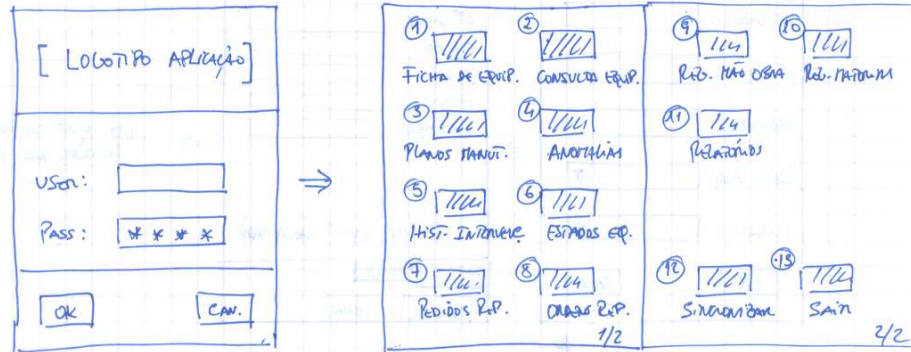 [ LOGOTIPO APLICAÇÃO ]
USER:
PASS: * * * *
OK CAN.
⇒
① ②
FICHA DE EQUIP. CONSULTA EQUIP.
③ ④
PLANOS MANUT. ANOMALIAS
⑤ ⑥
HIST. INTERVENÇ. ESTADOS EQ.
⑦ ⑧
PEDIDOS REP. ORDENS REP.
1/2
⑨ ⑩
REG. MÃO OBRA REG. MATERIAL
⑪
RELATÓRIOS
⑫ ⑬
SINCRONIZAR SAIR
2/2